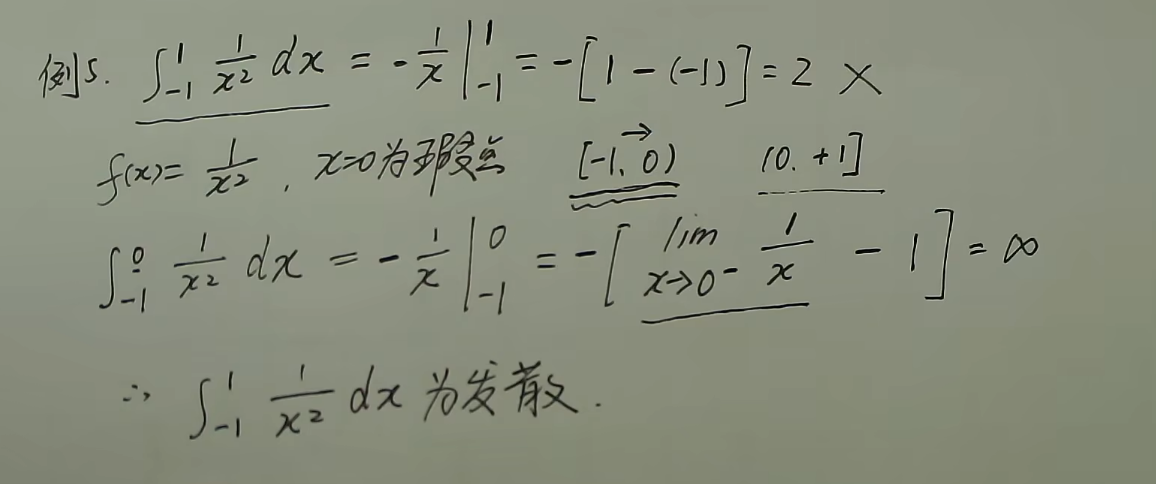 例5. ∫₋₁¹ 1/x² dx = -1/x |₋₁¹ = -[1-(-1)] = 2 ×
f(x)= 1/x², x=0为瑕点 [-1, 0) (0. +1]
∫₋₁⁰ 1/x² dx = -1/x |₋₁⁰ = -[lim x→0⁻ 1/x - 1] = ∞
∴ ∫₋₁¹ 1/x² dx 为发散.